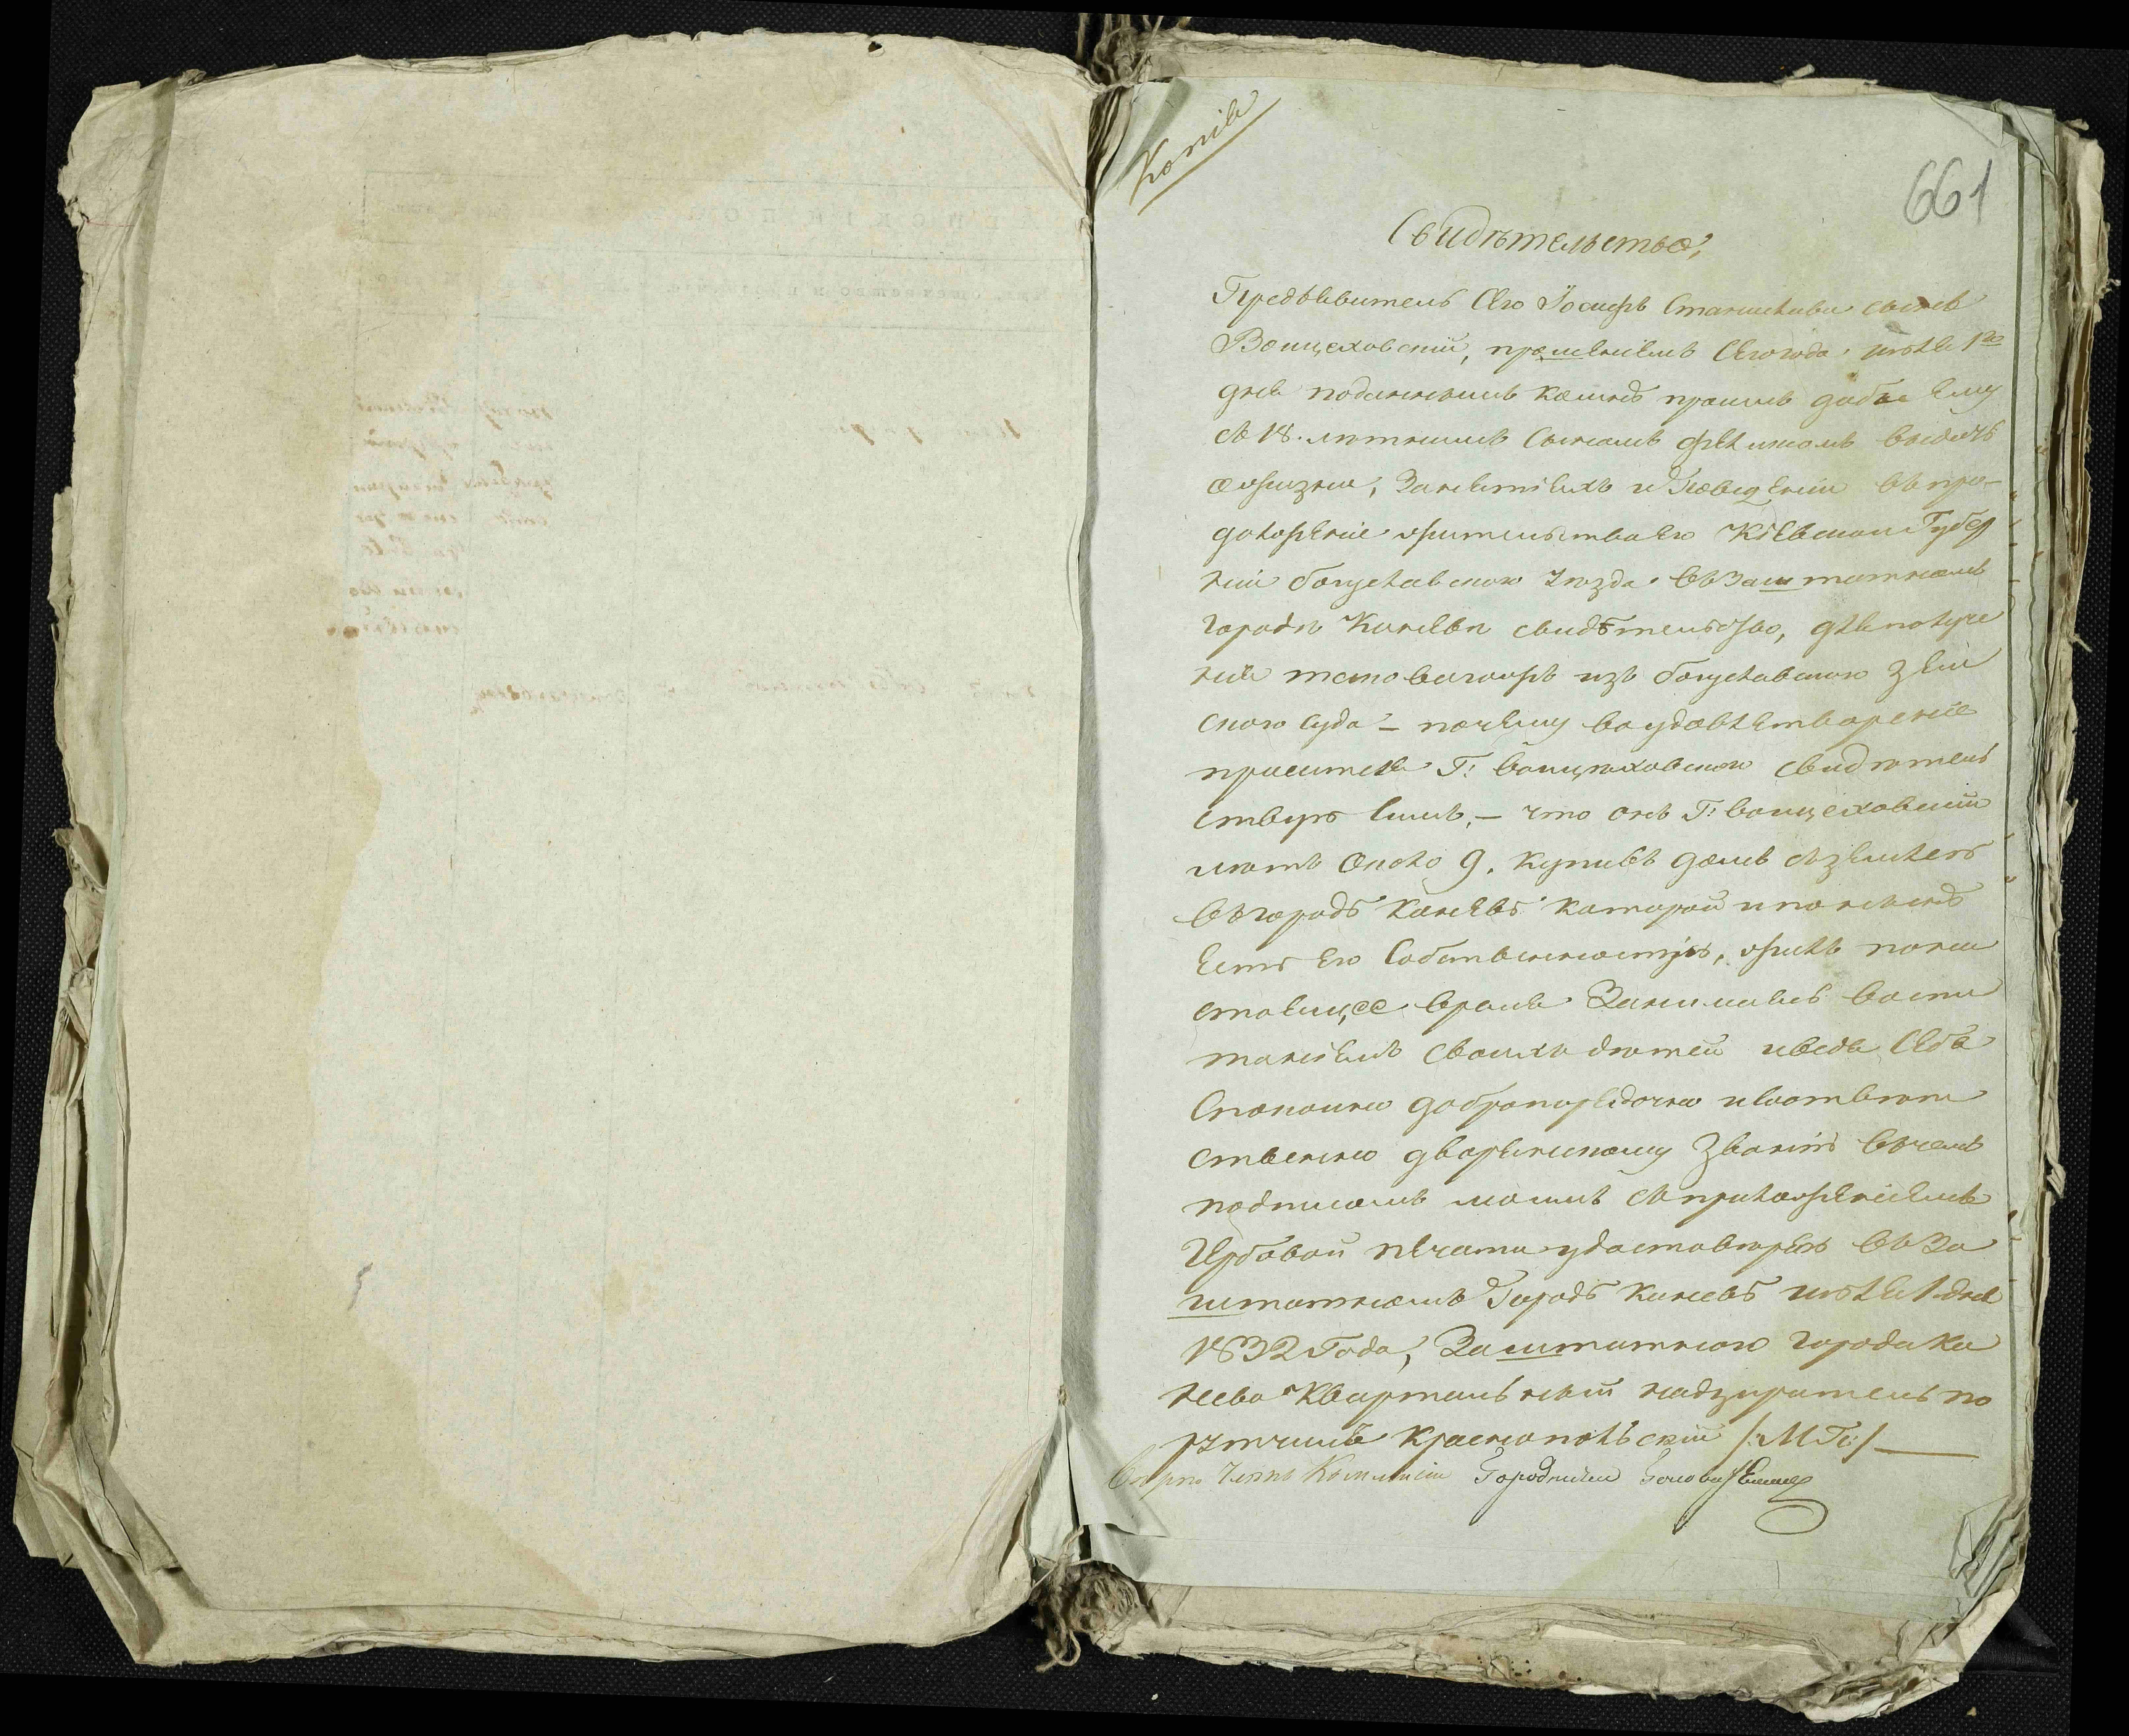 Копія
661
Свидѣтельство,
Предъявитель сего Іосифъ Станиславъ сынъ
Воицеховскій, прошеніемъ сего года іюля 1го
дня поданнымъ комнѣ просилъ дабы ему
съ 18. лѣтнимъ сыномъ выдать
о жизни, занятіяхъ и поведеніи въ про-
долженіе жительства его Кіевской Губер
ніи богуславского уѣзда въ заштатномъ
городѣ Каневѣ свидѣтельство, для получе
нія таковагожъ изъ богуславского Зем
ского суда – почему во удовлетвореніе
просителя Г: воицѣховского свидѣтель
ствую симъ, – что онъ Г: воицеховскій
лѣтъ около 9. купивъ домъ съ землею
въ городѣ Каневѣ которой и по нынѣ
есть его собственностію, жилъ по на
стоящее время занимаясь воспи
таніемъ своихъ дѣтей и ведя себя
спокойно добропорядочно и соотвѣт
ственно дворянскому званію въ чемъ
подписомъ моимъ съ приложеніемъ
Гербовой печати удостовѣряю въ за
штатномъ Городѣ Каневѣ іюля 1 дня
1832 Года, Заштатного города Ка
нева Квартальный надзиратель по
рутчикъ Краснопольскій /:М:П:/
Городничій